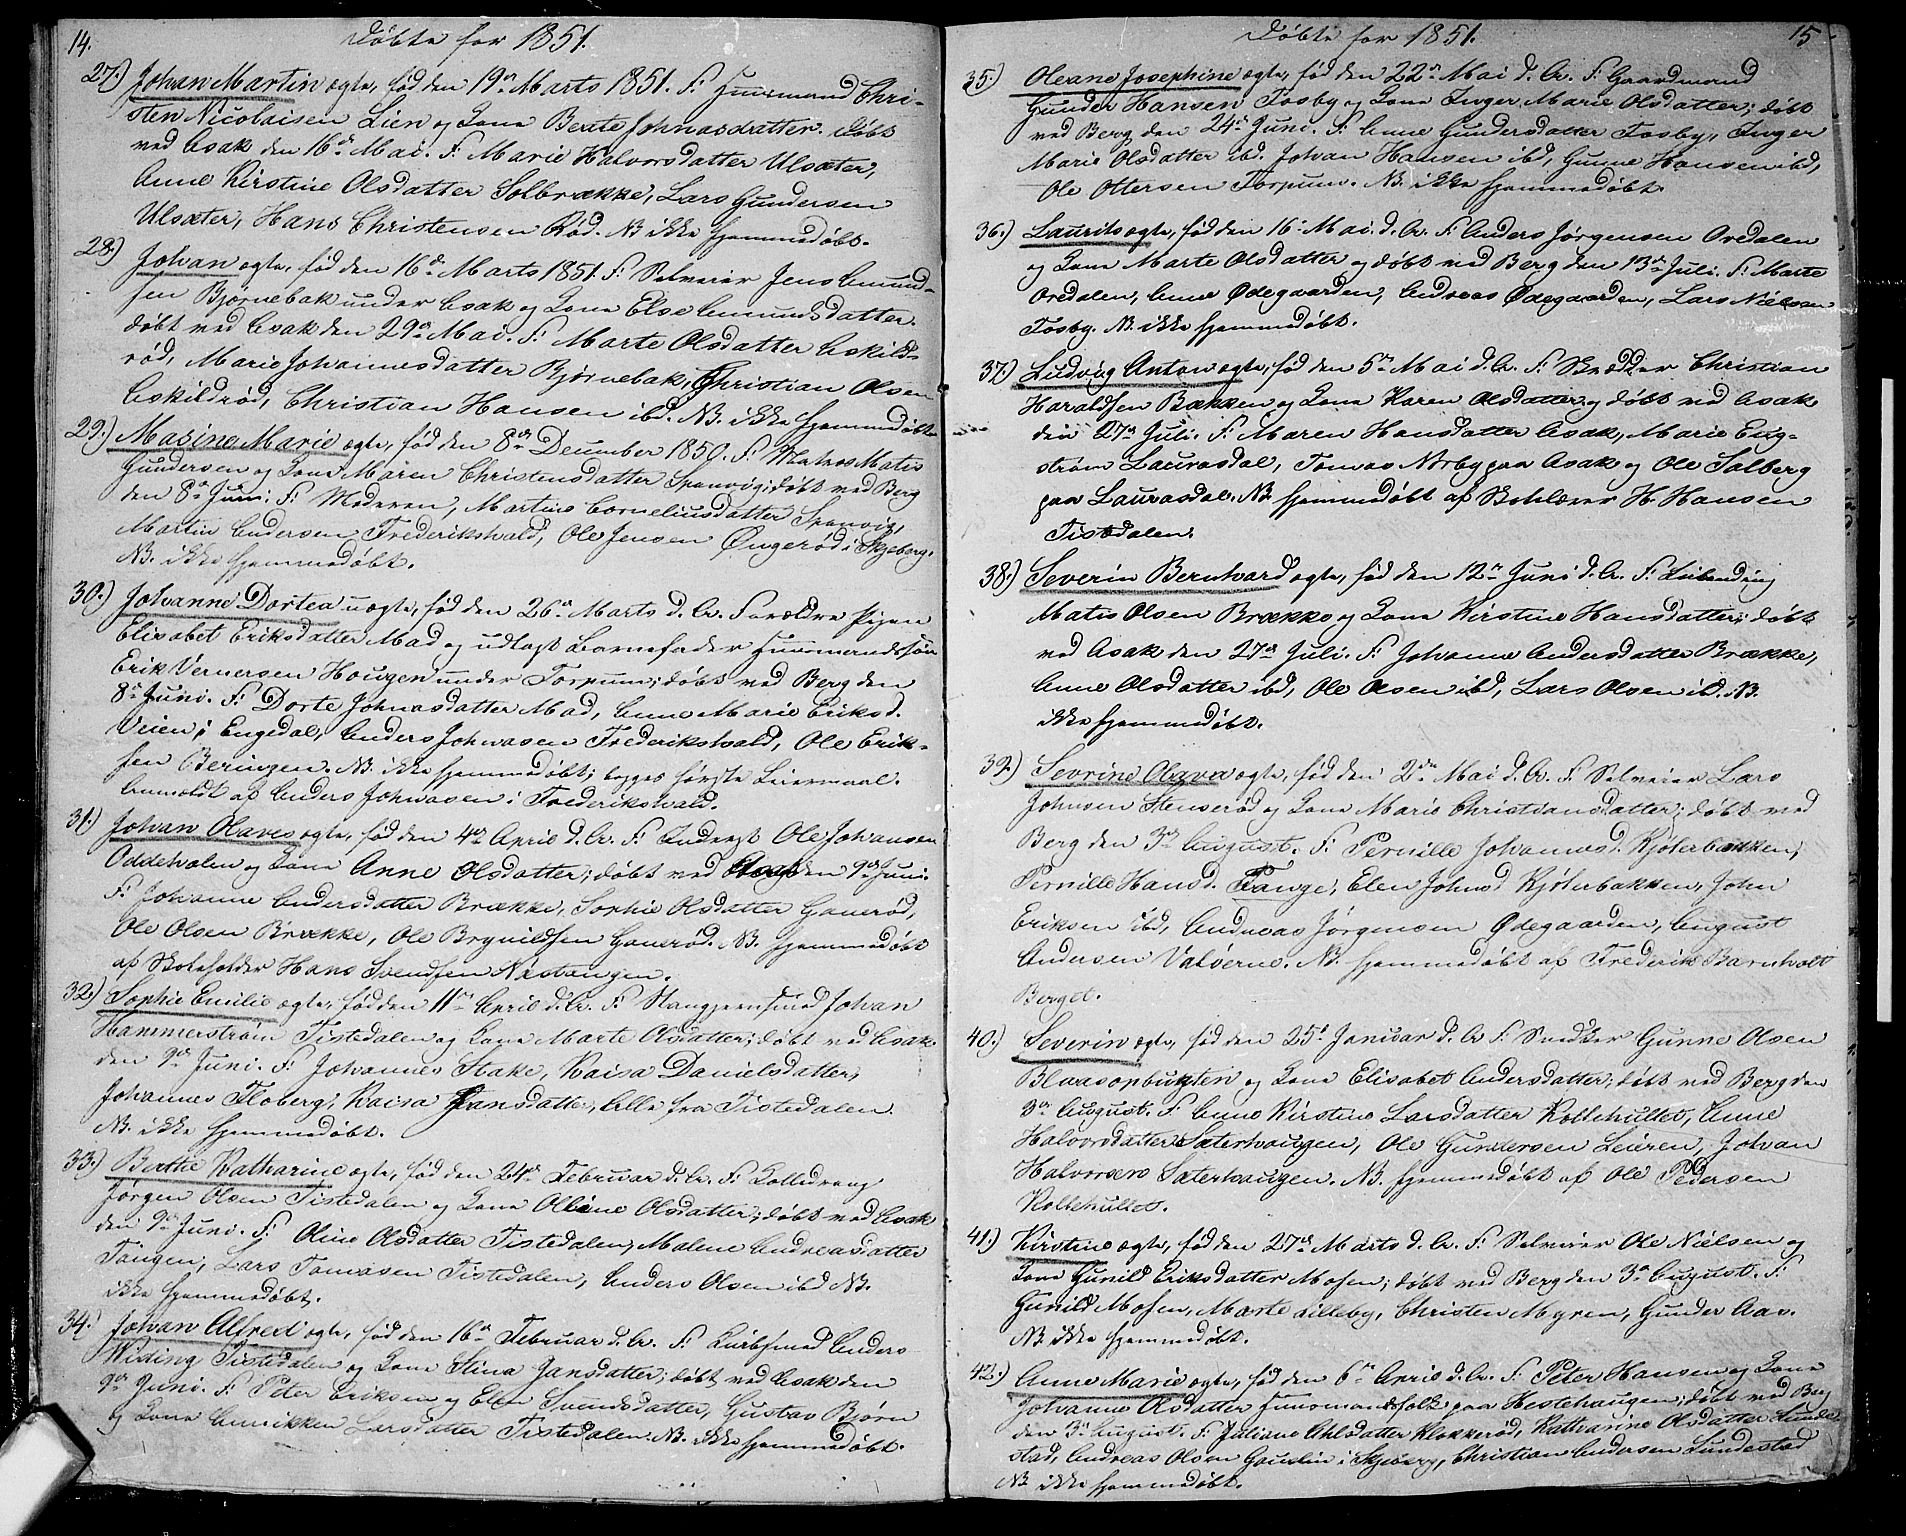 14.
Døbte for 1851.
27.) Johan Martin ægte, fød den 19de Marts 1851. F: Huusmand Chri-
sten Nicolaisen Lien og Kone Berte Johnasdatter. Døbt
ved Asak den 16de Mai. F: Marie Halvorsdatter Ulsæter,
Anne Kirstine Olsdatter Solbrække, Lars Gundersen
Ulsæter, Hans Christensen Rød. NB ikke hjemmedøbt.
28.) Johan ægte, fød den 16de Marts 1851. F: Selveier Jens Amund-
sen Bjørnebak under Asak og Kone Else Amundsdatter.
døbt ved Asak den 29de Mai. F: Marte Olsdatter Askilds-
rød, Marie Johannesdatter Bjørnebak, Christian Olsen
Askildrød, Christian Hansen ibd. NB. ikke hjemmedøbt
29.) Masine Marie ægte, fød den 8de December 1850. F: Matros Mats
Gundersen og Kone Maren Christensdatter Sponvig; døbt ved Berg
den 8de Juni. F: Moderen, Martine Corneliusdatter Sponvig,
Martin Andersen Frederikshald, Ole Jensen Øngerød i Skjeberg.
NB. ikke hjemmedøbt.
30.) Johanne Dortea uægte, fød den 26de Marts d. A. Forældre Pigen
Elisabet Eriksdatter Mad og udlagt Barnefader Huusmandssøn
Erik Vernersen Hougen under Torpum; døbt ved Berg den
8de Juni. F: Dorte Johnasdatter Mad, Anne Marie Eriksd.
Veien i Engedal, Anders Johnasen Frederikshald, Ole Erik-
sen Beringen. NB. ikke hjemmedøbt; begges første Leiermaal.
Anmeldt af Anders Johnasen i Frederikshald.
31.) Johan Olaves ægte, fød den 4de April d. A. F: Inderst Ole Johansen
Oddehalen og Kone Anne Olsdatter; døbt ved Asak den 9de Juni.
F: Johanne Andersdatter Brække, Sophie Olsdatter Gauerød,
Ole Olsen Brække, Ole Brynildsen Gauerød. NB. hjemmedøbt
af Skoleholder Hans Svendsen Nistangen.
32.) Sophie Emilie ægte, fød den 11te April d. A. F: Stangjernsmed Johan
Hammerstrøm Tistedalen og Kone Marte Olsdatter; døbt ved Asak
den 9de Juni. F: Johannes Stake, Kaisa Danielsdatter,
Johannes Floberg, Kaisa Jansdatter, Alle fra Tistedalen.
NB. ikke hjemmedøbt.
33.) Berthe Katharine ægte, fød den 24de Februar d. A. F:
Jørgen Olsen Tistedalen og Kone Olline Olsdatter; døbt ved Asak
den 9de Juni. F: Oline Olsdatter Tistedalen, Malene Andreasdatter
Tangen, Lars Tomasen Tistedalen, Anders Olsen ibd NB.
ikke hjemmedøbt.
34.) Johan Alfred ægte, fød den 16de Februar d. A. F: Anders
Widing Tistedalen og Kone Stina Jansdatter; døbt ved Asak den
9de Juni. F: Peter Eriksen og Elen Svendsdatter, Gustav Bjørn
og Kone Annikken Larsdatter Tistedalen. NB. ikke hjemmedøbt.
Døbte for 1851.
15
35.) Oleane Josephine ægte, fød den 22de Mai d. A. F: Gaardmand
Gunder Hansen Fosby og Kone Inger Marie Olsdatter; døbt
ved Berg den 24de Juni. F: Anne Gundersdatter Fosby, Inger
Marie Olsdatter ibd. Johan Hansen ibd, Gunne Hansen ibd,
Ole Ottersen Torpum. NB. ikke hjemmedøbt.
36.) Laurits ægte, fød den 16de Mai. d. A. F: Anders Jørgensen Oredalen
og Kone Marte Olsdatter og døbt ved Berg den 13de Juli. F: Marte
Oredalen, Anne Ødegaarden, Andreas Ødegaarden, Lars Nielsen
Fosby. NB. ikke hjemmedøbt.
37.) Ludvig Anton ægte, fød den 5te Mai d. A. F: Skrædder Christian
Haraldsen Bækken og Kone Karen Olsdatter og døbt ved Asak
den 27de Juli. F: Maren Hansdatter Asak, Marie Eng-
strøm Laurasdal, Tomas Norby paa Asak og Ole Solberg
paa Laurasdal. NB. hjemmedøbt af Skolelærer H. Hansen
Tistedalen.
38.) Severin Bernhard ægte, fød den 12te Juni d. A. F:
Matis Olsen Brække og Kone Kirstine Hansdatter; døbt
ved Asak den 27de Juli. F: Johanne Andersdatter Brække,
Anne Olsdatter ibd, Ole Olsen ibd, Lars Olsen ibd. NB.
ikke hjemmedøbt.
39.) Sevrine Olava ægte, fød den 2den Mai d. A. F: Selveier Lars
Johnsen Stenserød og Kone Marie Christiansdatter; døbt ved
Berg den 3de August. F: Pernille Johannesd. Kjøterbakken,
Pernille Hansd. Tange, Elen Johnsd Kjøterbakken, John
Eriksen ibd, Andreas Jørgensen Ødegaarden, August
Andersen Valderne. NB. hjemmedøbt af Frederik Barnholt
Berget.
40.) Severin ægte, fød den 25de Januar d. A F: Snedker Gunne Olsen
Blaasopbukten og Kone Elisabet Andersdatter; døbt ved Berg den
3de August. F: Anne Kirstine Larsdatter Kollehullet, Anne
Halvorsdatter Saterhaugen, Ole Gundersen Leieren, Johan
Halvorsen Saterhaugen. NB. hjemmedøbt af Ole Pedersen
Kollehullet.
41.) Kirstine ægte, fød den 27de Marts d. A. F: Selveier Ole Nielsen og
Kone Gunild Eriksdatter Mosen; døbt ved Berg den 3de August. F:
Gunild Mosen, Marte Lilleby, Christen Myren, Gunder Aas.
NB. ikke hjemmedøbt.
42.) Anne Marie ægte, fød den 6te April d. A. F: Peter Hansen og Kone
Johanne Olsdatter Huusmandsfolk paa Hestehaugen; døbt ved Berg
den 3de August. F: Juliane Ahlsdatter Klokkerød, Katharine Olsdatter Lunde-
stad, Andreas Olsen Gauslin i Skjeberg, Christian Andersen Lundestad
NB ikke hjemmedøbt.